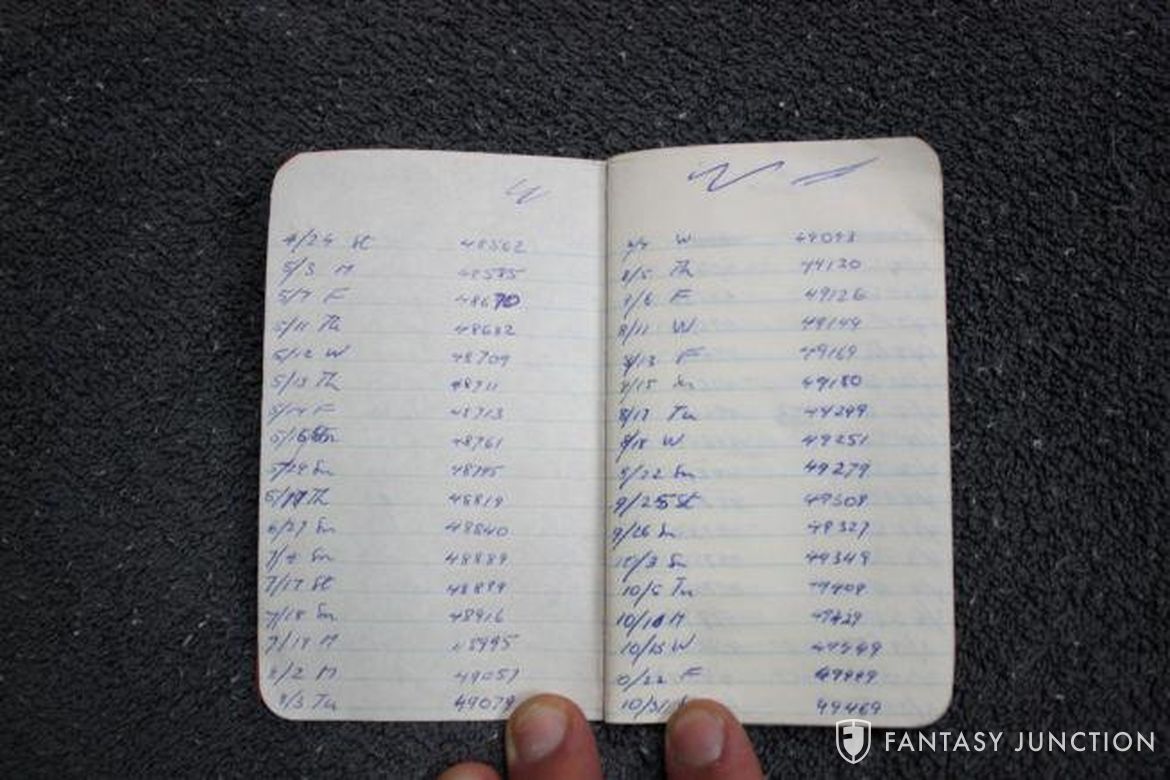 4/24 St 48562
5/3 M 48585
5/7 F 48670
5/11 Tu 48682
5/12 W 48709
5/13 Th 48711
5/14 F 48713
48761
5/29 Sn 48795
Th 48819
6/27 Sn 48840
7/4 Sn 48889
7/17 St 48899
7/18 Sn 48916
7/19 M
8/2 M 49057
8/3 Tu 49079
8/4 W 49093
8/5 Th 49120
8/6 F 49126
8/11 W 49144
8/13 F 49169
8/15 Sn 49180
8/17 Tu 49249
8/18 W 49251
8/22 Sn 49279
9/25 St 49308
9/26 Sn 49327
10/3 Sn 49349
10/5 Tu 49409
M 49429
W 49449
10/22 F
10/31 49469
FANTASY JUNCTION